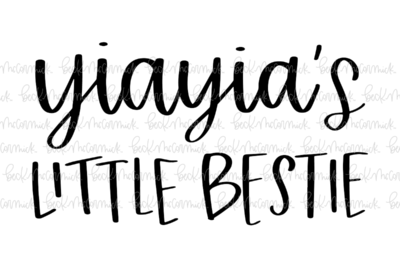 yiayia's
LITTLE BESTIE